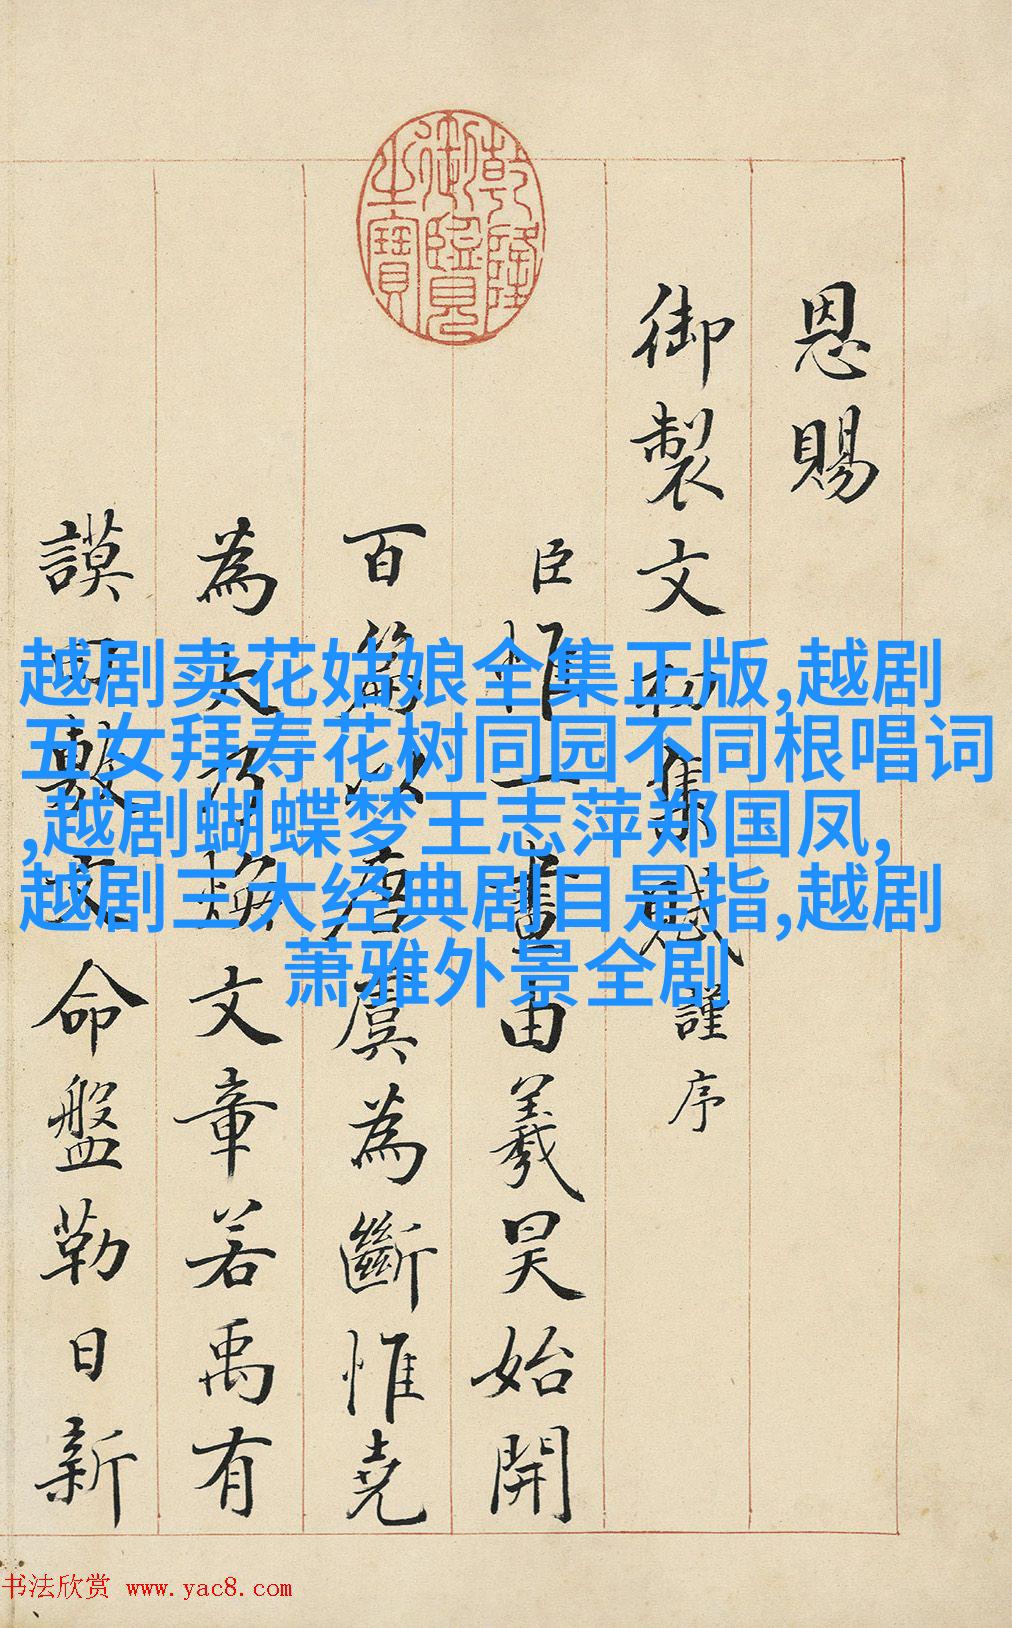 乾隆
御覽
之寶
恩賜
御製文初集謹序
臣惟一畫由羲昊始開
百篇以唐虞為斷惟堯
為大乃煥文章若禹有
謨用敷文命盤勒日新
越剧卖花姑娘全集正版,越剧
五女拜寿花树同园不同根唱词
,越剧蝴蝶梦王志萍郑国凤,
越剧三大经典剧目是指,越剧
萧雅外景全剧
书法欣赏 www.yac8.com